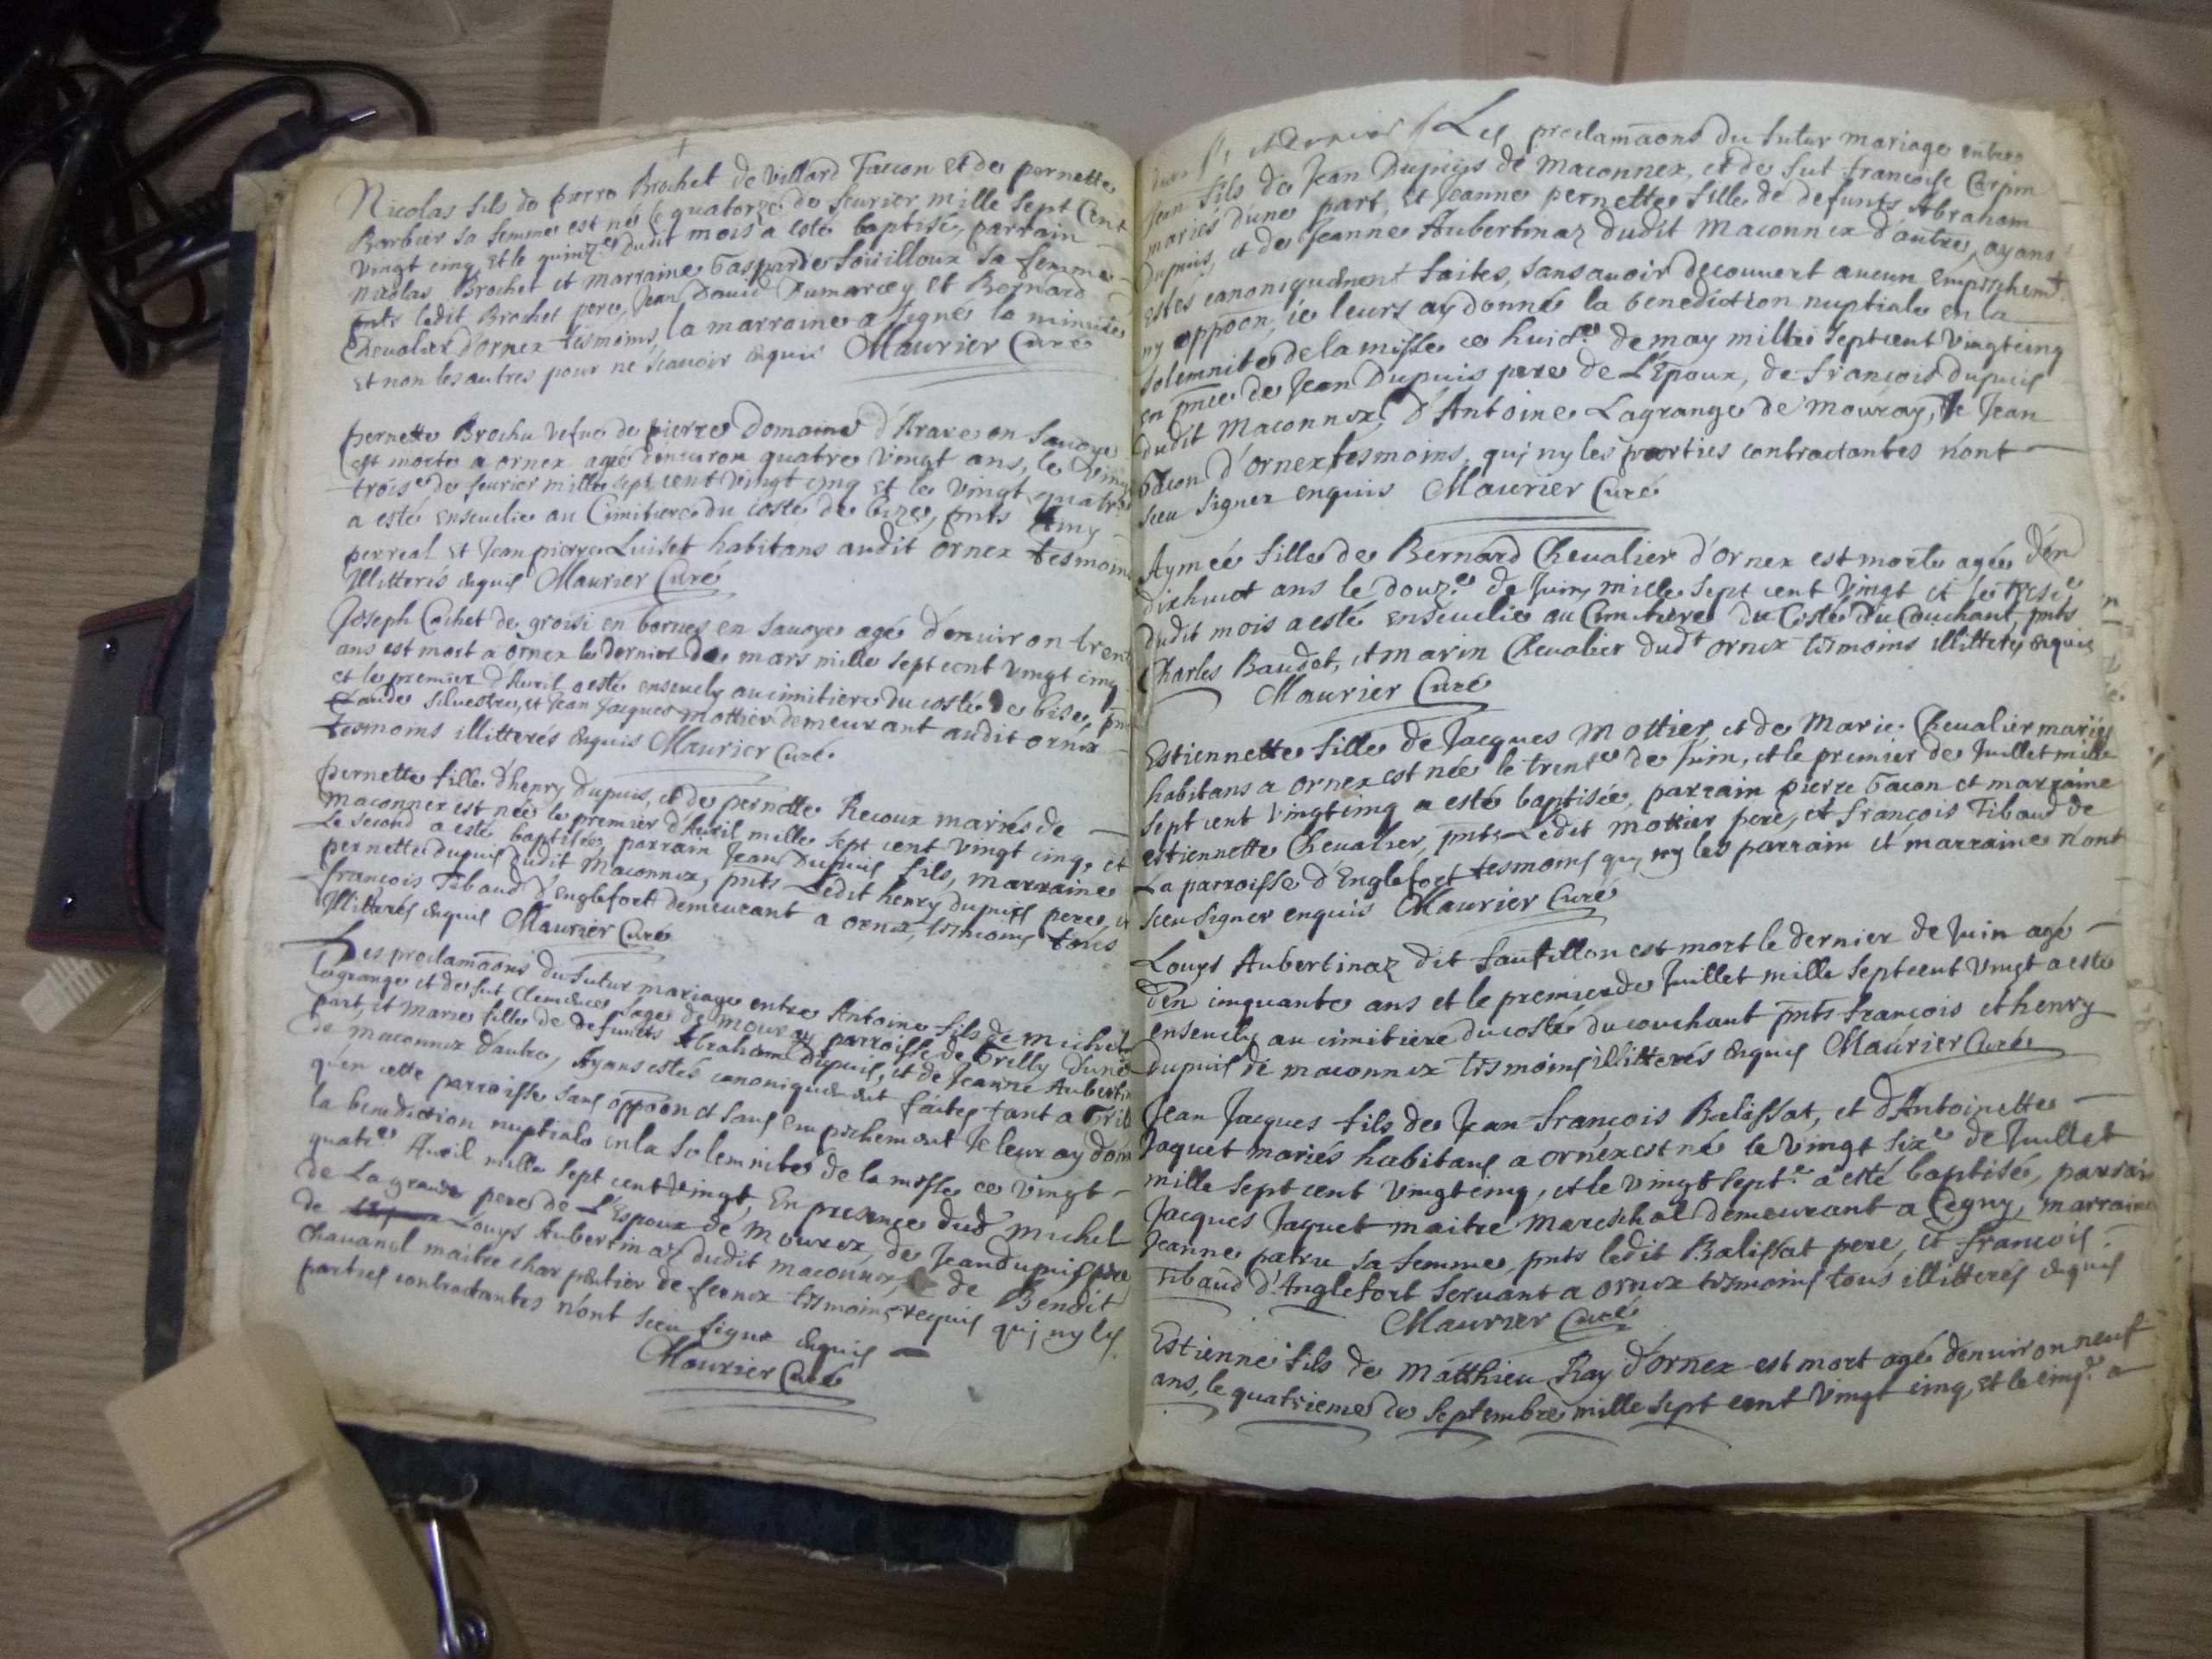 Nicolas fils de pierre Brochet de Villard Tacon et de pernette
Barbier sa femme est né le quatorze de feurier mille sept Cent
vingt cinq et le quinze dudit mois a esté baptisé, parrain
Nicolas Brochet et marraine Gasparde Souilloux sa femme
pnts ledit Brochet pere, Jean Dauid Dumarcey et Bernard
Cheualier d'ornex tesmoins, la marraine a signé la minute
et non les autres pour ne scauoir enquis Maurier Curé
pernette Brochu vefue de pierre Domaine d'Arare en Sauoye
est morte a ornex agée d'enuiron quatre vingt ans, le vingt
troise de feurier mille sept cent vingt cinq et le vingt quatre
a esté enseuelie au Cimitiere du costé de bize, pnts Amy
perreal et Jean pierre Luiset habitans audit ornex tesmoins
illitterés enquis Maurier Curé
Joseph Cachet de groisi en bornes en Sauoye agé d'enuiron trente
ans est mort a ornex le dernier de mars mille sept cent vingt cinq
et le premier d'Auril a esté enseuely au cimitiere du costé de bise, pnts
Claude Siluestre, et Jean Jacques mottier demeurant audit ornex
tesmoins illitterés enquis Maurier Curé
pernette fille d'henry Dupuis, et de pernette Recoux mariés de
maconnex est née le premier d'Auril mille sept cent vingt cinq, et
Le second a esté baptisée, parrain Jean Dupuis fils, marraine
pernette dupuis dudit maconnex, pnts Ledit henry dupuis pere, et
françois Tibaud d'Englefort demeurant a ornex, tesmoins tous
illitterés enquis Maurier Curé
Les proclamaons du futur mariage entre Antoine fils de michel
Lagrange et de fut Clemence Sage de mouray parroisse de Grilly d'une
part, et marie fille de defunts Abraham dupuis, et de Jeanne Aubertin
de maconnex d'autre, Ayans estés canoniquement faites tant a Gril
qu'en cette parroisse sans oppoon et sans empechement Je leur ay donné
la benediction nuptiale en la solemnité de la messe ce vingt
quatre Auril mille sept cent vingt, En presence dud michel
de Lagrange pere de L'Espoux de mourex, de Jean dupuis pere
de Louys Aubertinaz dudit maconnex, de Bendit
Chauanel maitre charpentier de fernex tesmoins requis qui ny les
parties contractantes n'ont sceu signe enquis
Maurier Curé
Les proclamaons du futur mariage entre
Jean fils de Jean Dupuys de maconnex, et de fut françoise Carpin
mariés d'une part, et Jeanne pernette fille de defunts Abraham
Dupuis, et de Jeanne Aubertinaz dudit maconnex d'autre, ayans
estés canoniquement faites, sans auoir decouuert aucun empeschemt
ny oppoon, ie leurs ay donné la benediction nuptiale en la
solemnité de la messe ce huicte de may mille sept cent vingt cinq
en pnce de Jean Dupuis pere de L'Epoux, de françois dupuis
dudit maconnex, d'Antoine Lagrange de mouray, de Jean
Gacon d'ornex tesmoins, qui ny les parties contractantes n'ont
sceu signer enquis Maurier Curé
Aymée fille de Bernard Cheualier d'ornex est morte agée d'en
dixhuict ans le douze de Juin mille sept cent vingt et le treise
dudit mois a esté enseuelie au Cimitiere du Costé du Couchant, pnts
Charles Baudet, et marin Cheualier dudt ornex tesmoins illitterés enquis
Maurier Curé
Estiennette fille de Jacques mottier, et de marie Cheualier mariés
habitans a ornex est née le trente de Juin, et le premier de Juillet mille
sept cent vingt cinq a esté baptisée, parrain pierre Gacon et marraine
estiennette Cheualier, pnts Ledit mottier pere, et françois Tibaud de
La parroisse d'Englefort tesmoins qui ny les parrain et marraine n'ont
sceu signer enquis Maurier Curé
Louys Aubertinaz dit Sautillon est mort le dernier de Juin agé
d'en cinquante ans et le premier de Juillet mille sept cent vingt a esté
enseuely au cimitiere du costé du couchant pnts françois et henry
Dupuis de maconnex tesmoins illitterés enquis Maurier Curé
Jean Jacques fils de Jean françois Balissat, et d'Antoinette
Jaquet mariés habitans a ornex est né le vingt sixe de Juillet
mille sept cent vingt cinq, et le vingt septe a esté baptisé, parrain
Jacques Jaquet maitre mareschal demeurant a Cegny, marraine
Jeanne patru sa femme, pnts ledit Balissat pere, et françois
Tibaud d'Anglefort seruant a ornex tesmoins tous illitterés enquis
Maurier Curé
Estienne fils de matthieu Ray d'ornex est mort agé denuiron neuf
ans, le quatrieme de septembre mille sept cent vingt cinq, et le cinqe a